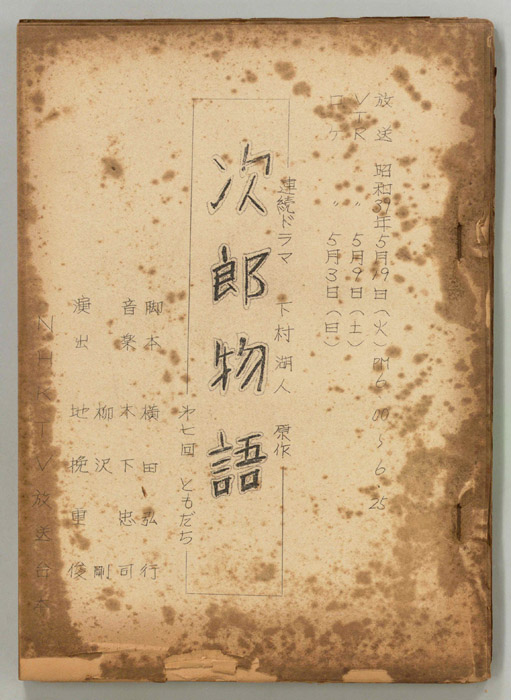 放送 昭和39年5月19日(火)PM6.00〜6.25
VTR 〃 5月9日(土)
ロケ 〃 5月3日(日)
連続ドラマ 下村湖人 原作
次郎物語
第七回 ともだち
脚本 横田弘行
音楽 木下忠司
柳沢剛
演出 地挽重俊
NHKTV放送台本